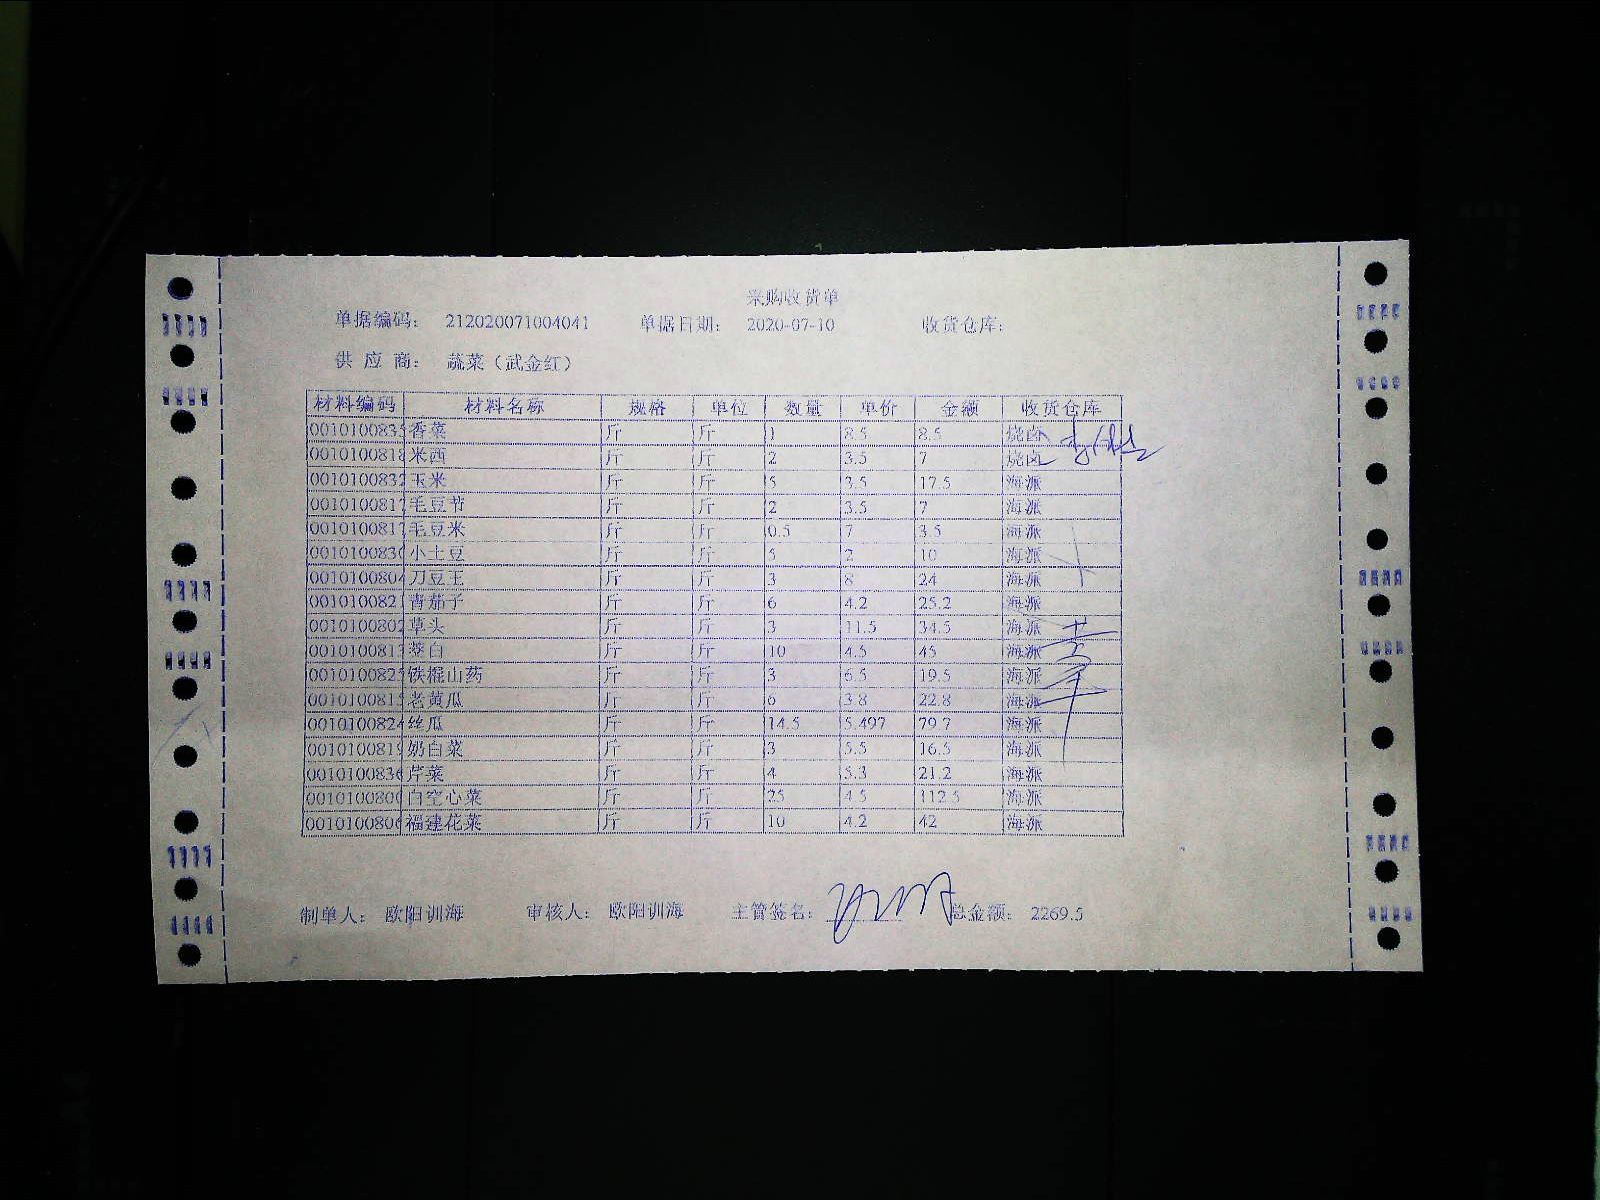 采购收货单
单据编码： 212020071004041 单据日期： 2020-07-10 收货仓库：
供 应 商： 蔬菜（武金红）
材料编码 材料名称 规格 单位 数量 单价 金额 收货仓库
0010100835 香菜 斤 斤 1 8.5 8.5 烧卤
0010100818 米西 斤 斤 2 3.5 7 烧卤
0010100832 玉米 斤 斤 5 3.5 17.5 海派
0010100817 毛豆节 斤 斤 2 3.5 7 海派
0010100817 毛豆米 斤 斤 0.5 7 3.5 海派
0010100830 小土豆 斤 斤 5 2 10 海派
0010100804 刀豆王 斤 斤 3 8 24 海派
0010100821 青茄子 斤 斤 6 4.2 25.2 海派
0010100802 草头 斤 斤 3 11.5 34.5 海派
0010100813 茭白 斤 斤 10 4.5 45 海派
0010100825 铁棍山药 斤 斤 3 6.5 19.5 海派
0010100815 老黄瓜 斤 斤 6 3.8 22.8 海派
0010100824 丝瓜 斤 斤 14.5 5.497 79.7 海派
0010100819 奶白菜 斤 斤 3 5.5 16.5 海派
0010100836 芹菜 斤 斤 4 5.3 21.2 海派
0010100800 白空心菜 斤 斤 25 4.5 112.5 海派
0010100806 福建花菜 斤 斤 10 4.2 42 海派
制单人： 欧阳训海 审核人： 欧阳训海 主管签名： 总金额： 2269.5